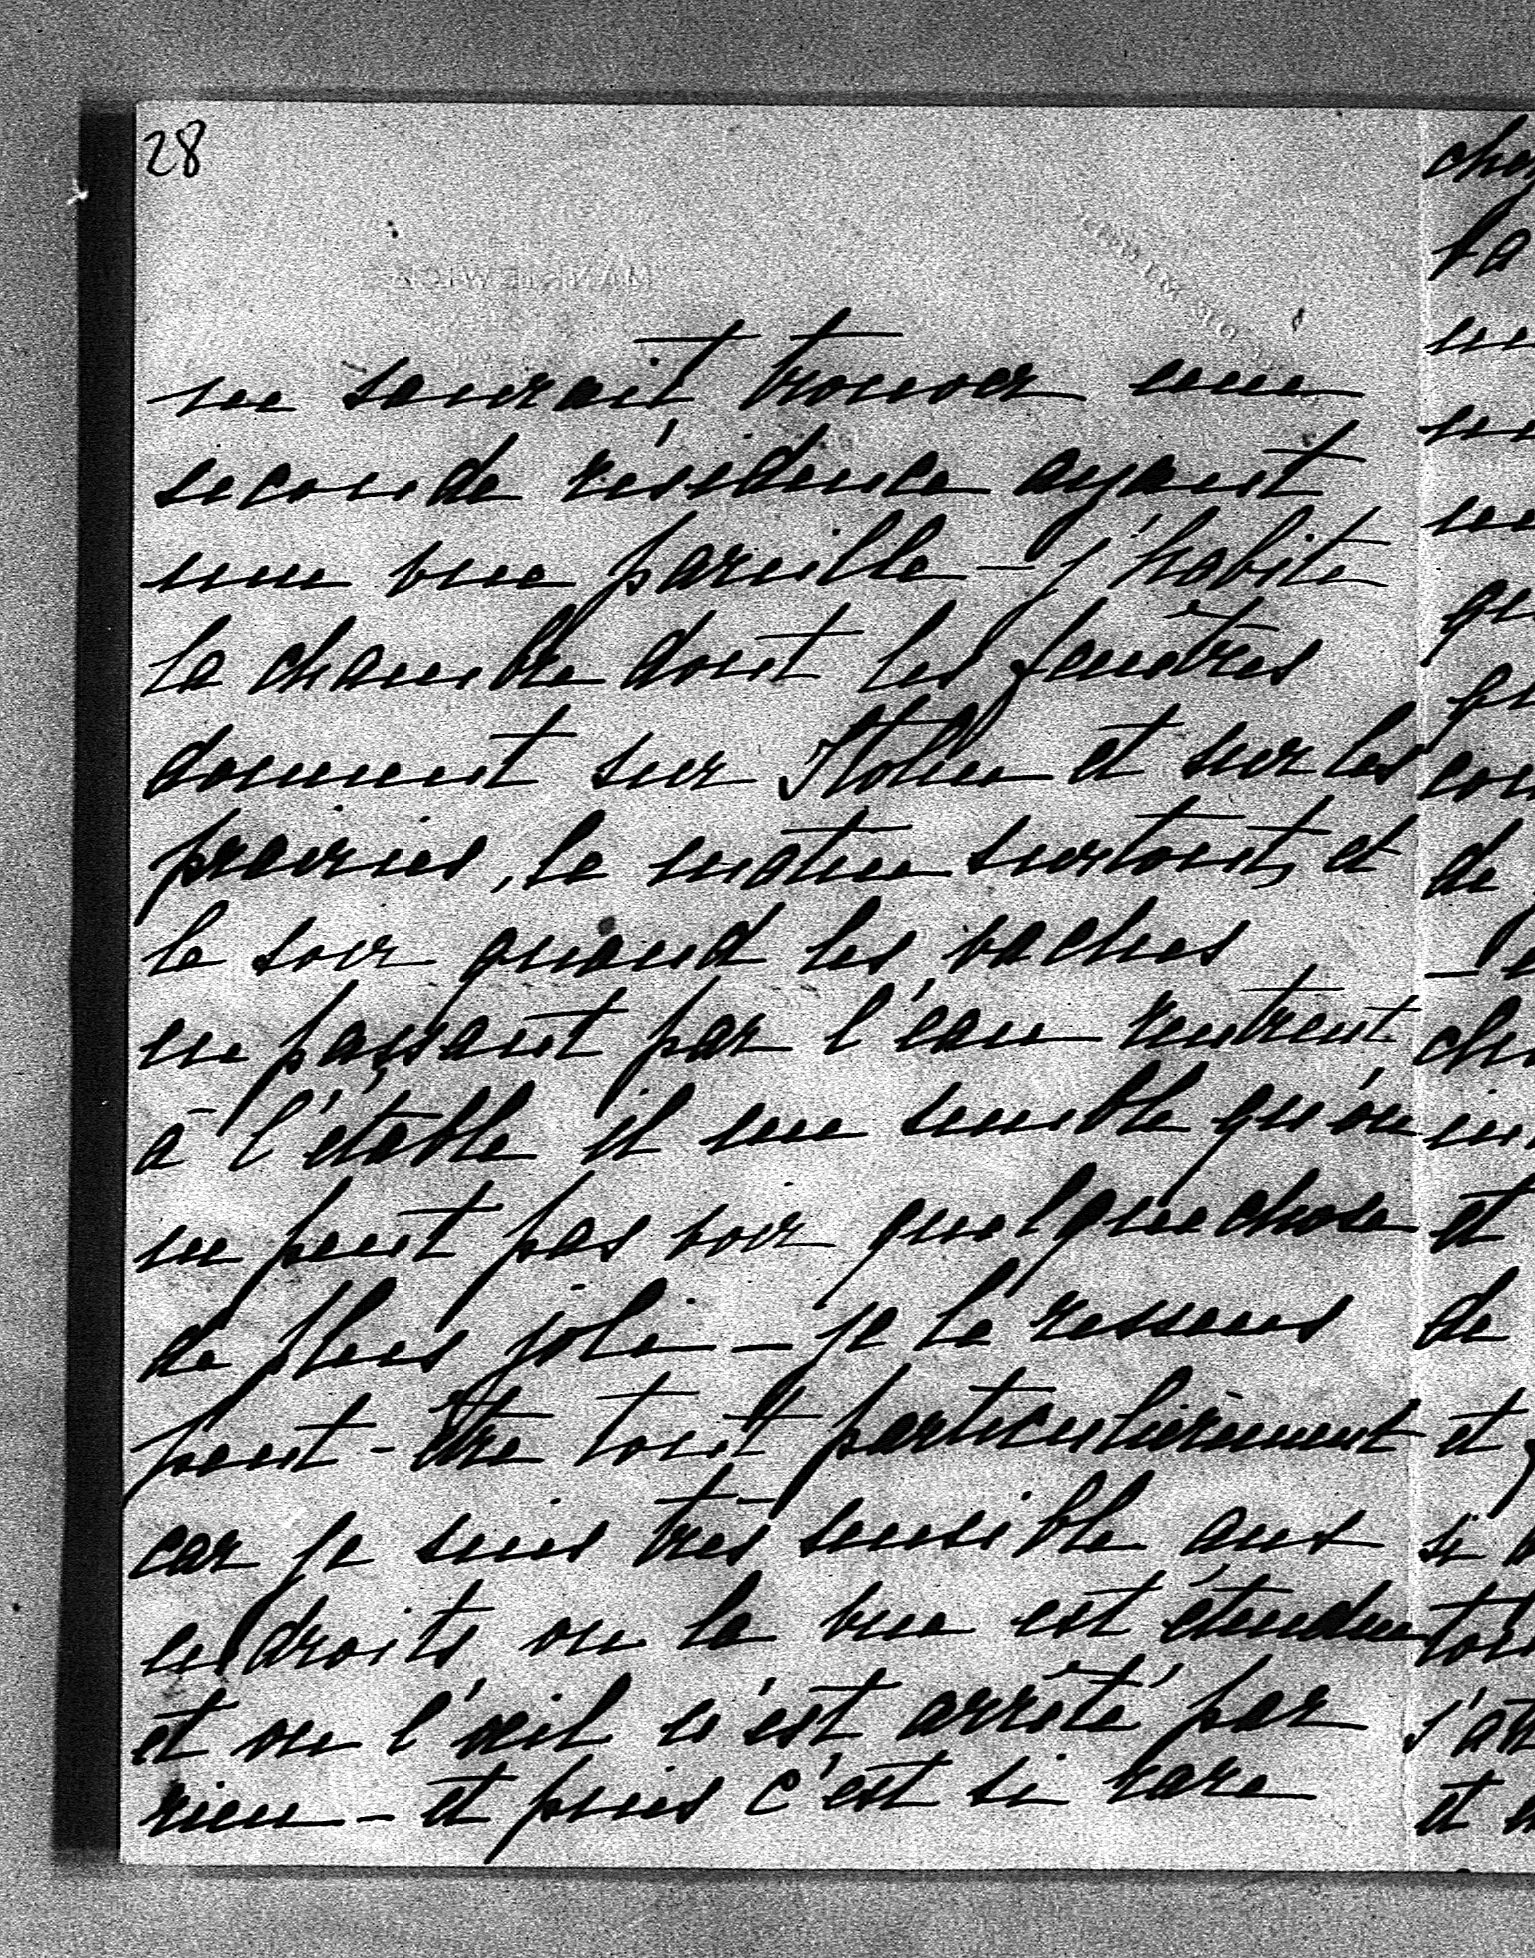 28
ne saurait trouver une
seconde résidence ayant
une vue pareille – j'habite
la chambre dont les fenêtres
donnent sur Stolin et sur les
prairies, le matin surtout, et
le soir quand les vaches
en passant par l'eau rentrent
à l'étable il me semble qu'on
ne peut pas voir quelque chose
de plus joli – je le ressens
peut-être tout particulièrement
car je suis très sensible aux
endroits ou la vue est étendue
et ou l'œil n'est arrêté par
rien – et puis c'est si rare